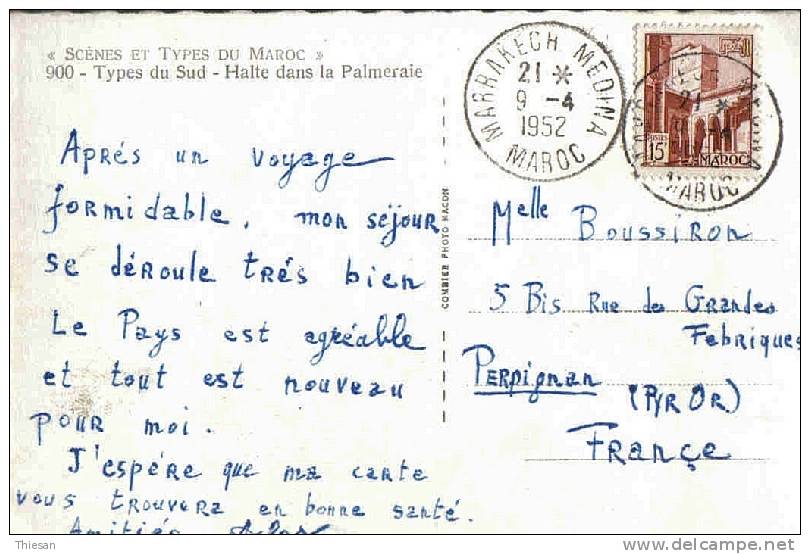 « SCÈNES ET TYPES DU MAROC »
900 - Types du Sud - Halte dans la Palmeraie
Aprés un voyage
formidable, mon séjour
se déroule trés bien
Le Pays est agréable
et tout est nouveau
pour moi.
J'espére que ma carte
vous trouvera en bonne santé.
Amitiés
COMBIER PHOTO MACON
MARRAKECH MEDINA
21 *
9 -4
1952
MAROC
15F
MAROC
21 *
MAROC
Melle Boussiron
5 Bis Rue des Grandes
Fabriques
Perpignan
(Pyr Or)
Françe
Thiesan
www.delcampe.net